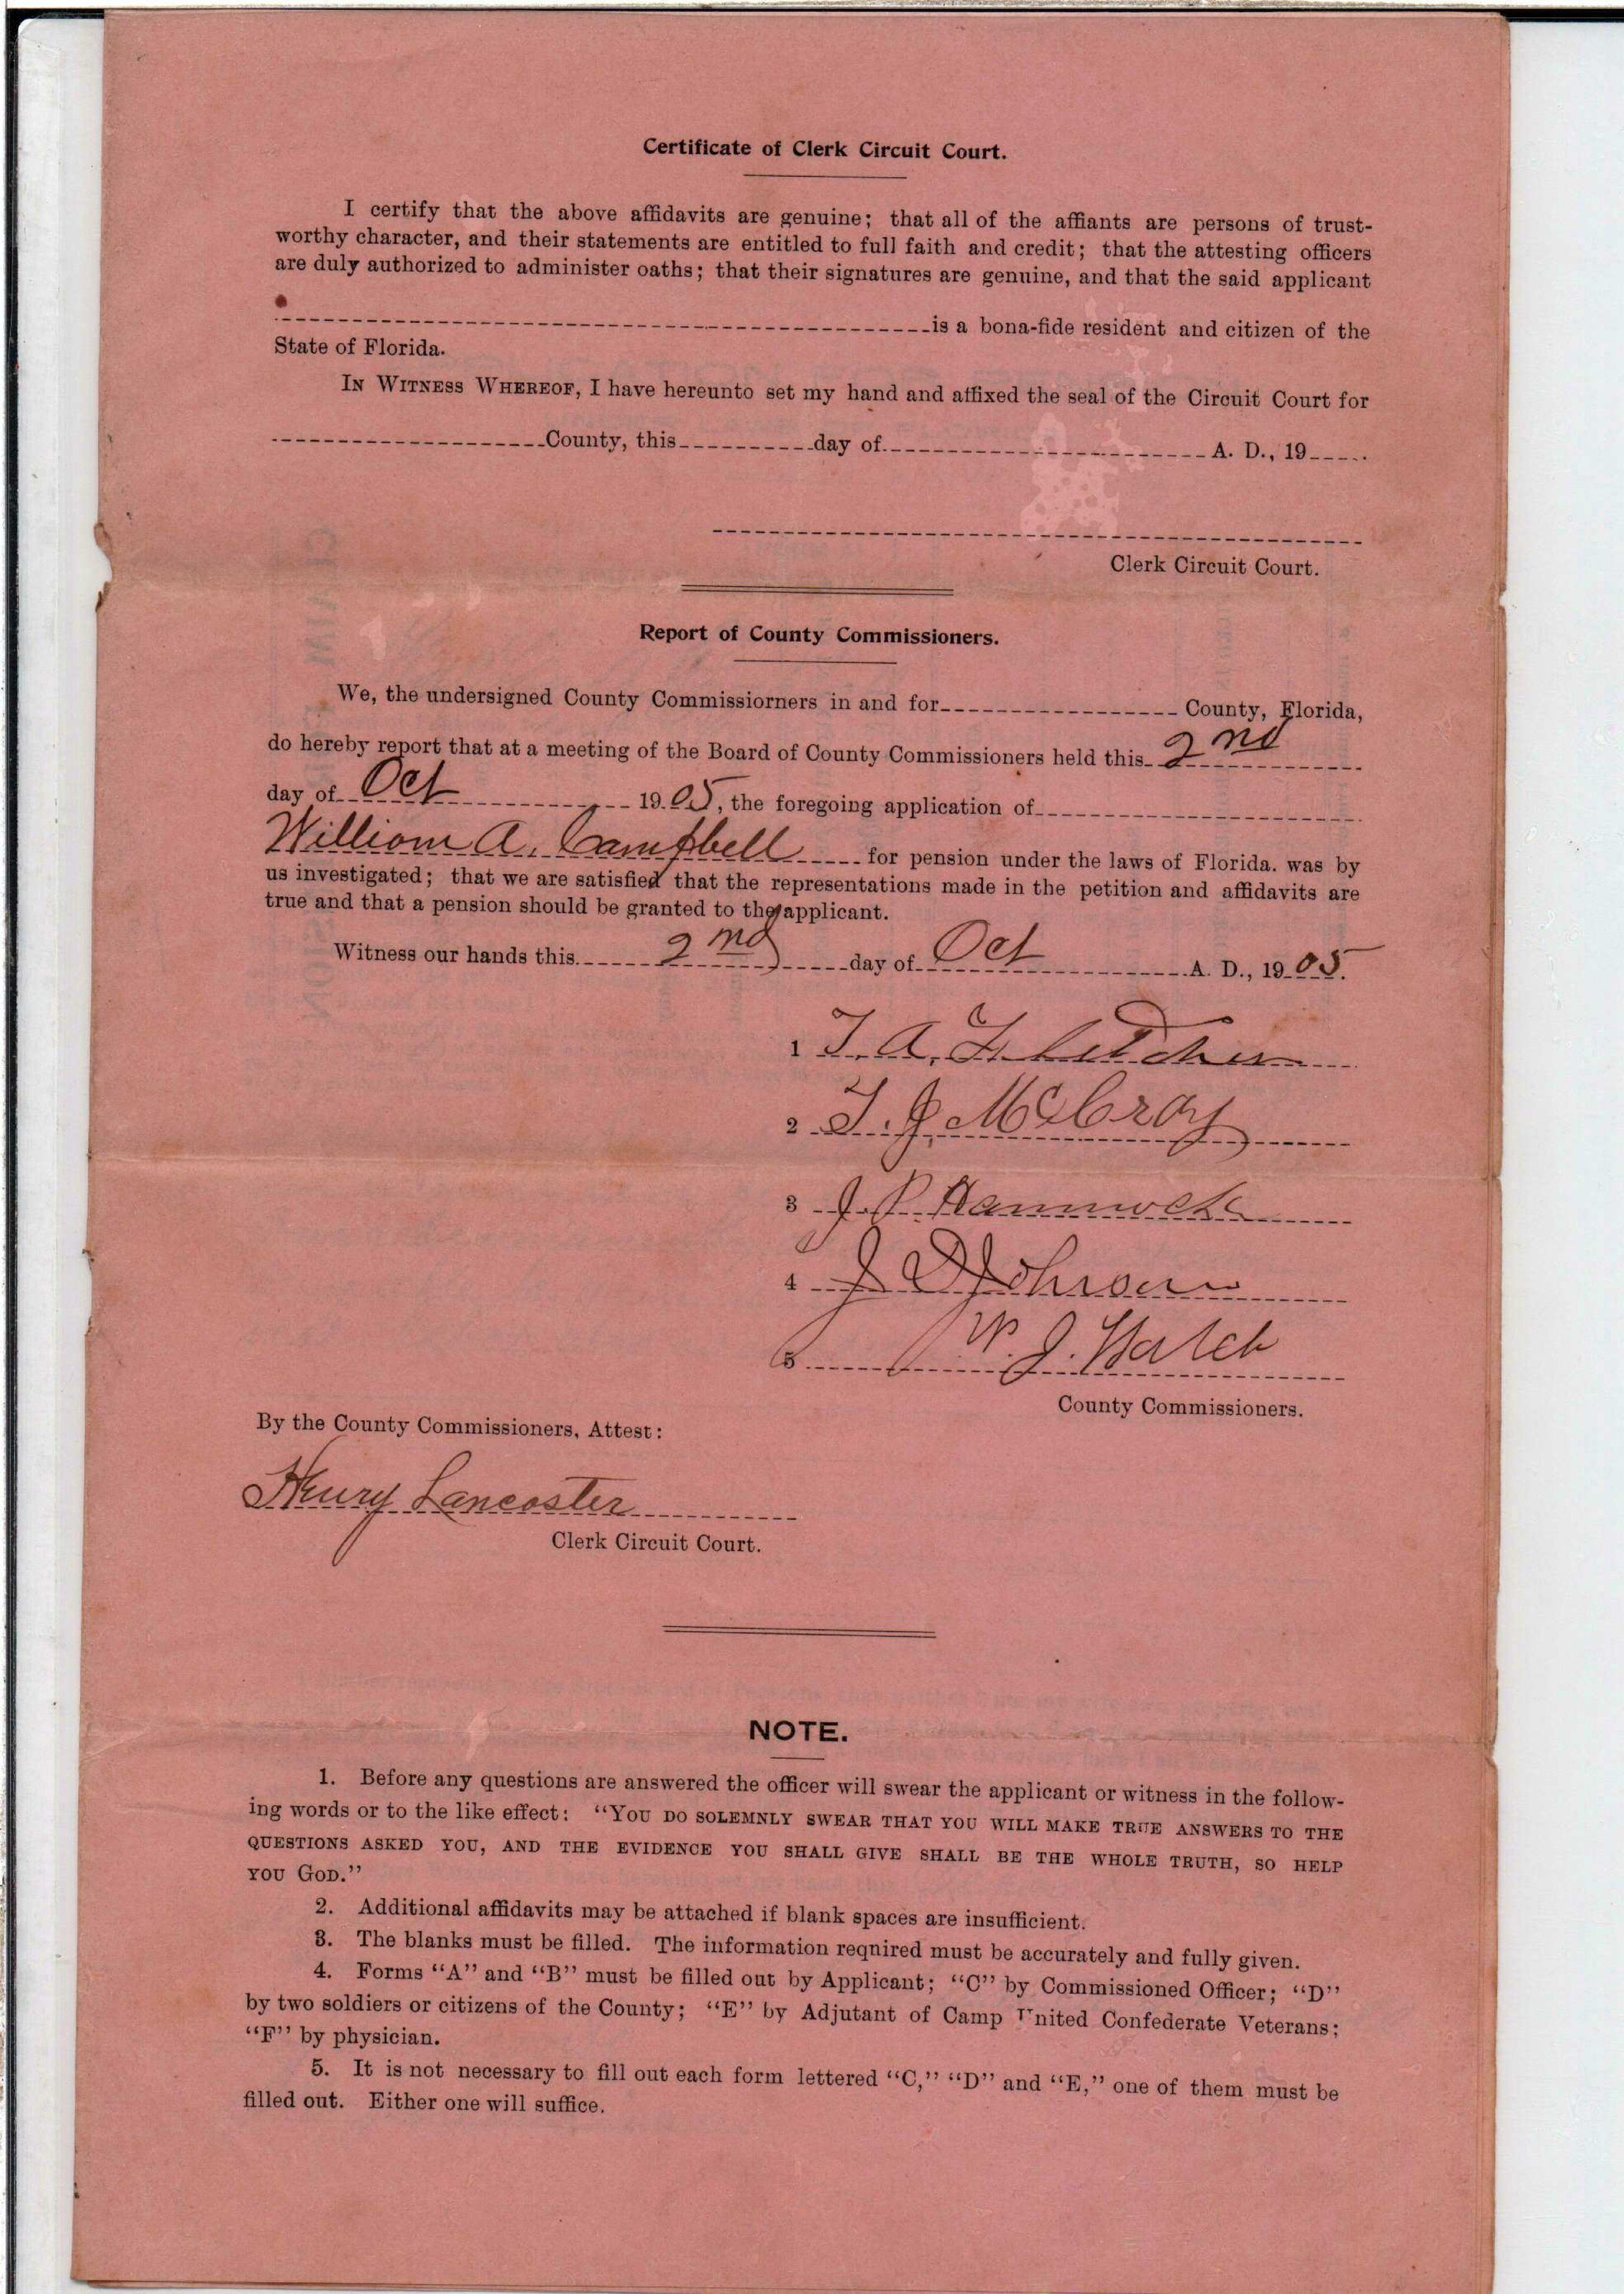 Certificate of Clerk Circuit Court.
I certify that the above affidavits are genuine; that all of the affiants are persons of trust-
worthy character, and their statements are entitled to full faith and credit; that the attesting officers
are duly authorized to administer oaths; that their signatures are genuine, and that the said applicant
is a bona-fide resident and citizen of the
State of Florida.
IN WITNESS WHEREOF, I have hereunto set my hand and affixed the seal of the Circuit Court for
County, this day of A. D., 19
Clerk Circuit Court.
Report of County Commissioners.
We, the undersigned County Commissiorners in and for County, Florida,
do hereby report that at a meeting of the Board of County Commissioners held this 2nd
day of Oct 1905, the foregoing application of
William A. Campbell for pension under the laws of Florida. was by
us investigated; that we are satisfied that the representations made in the petition and affidavits are
true and that a pension should be granted to the applicant.
Witness our hands this 2nd day of Oct A. D., 1905.
1 T. A. Fletcher
2 T. J. McCray
3 J. P. Hammock
4 J D Johnson
5 W. J. Hatch
County Commissioners.
By the County Commissioners, Attest:
Henry Lancaster
Clerk Circuit Court.
NOTE.
1. Before any questions are answered the officer will swear the applicant or witness in the follow-
ing words or to the like effect: "YOU DO SOLEMNLY SWEAR THAT YOU WILL MAKE TRUE ANSWERS TO THE
QUESTIONS ASKED YOU, AND THE EVIDENCE YOU SHALL GIVE SHALL BE THE WHOLE TRUTH, SO HELP
YOU GOD."
2. Additional affidavits may be attached if blank spaces are insufficient.
3. The blanks must be filled. The information reqnired must be accurately and fully given.
4. Forms "A" and "B" must be filled out by Applicant; "C" by Commissioned Officer; "D"
by two soldiers or citizens of the County; "E" by Adjutant of Camp United Confederate Veterans;
"F" by physician.
5. It is not necessary to fill out each form lettered "C," "D" and "E," one of them must be
filled out. Either one will suffice.